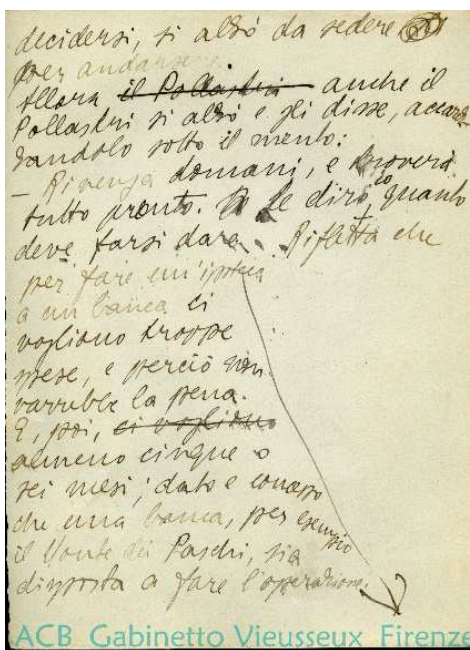 decidersi, si alzò da sedere
per andarsene.
Allora il Pollastri anche il
Pollastri si alzò e gli disse, accarez-
zandolo sotto il mento:
– Rivenga domani, e troverà
tutto pronto. Le dirò io quanto
deve farsi dare. Rifletta che
per fare un'ipoteca
a un banca ci
vogliono troppe
spese, e perciò non
varrebbe la pena.
E, poi, ci vogliono
almeno cinque o
sei mesi; dato e concesso
che una banca, per esempio
il Monte dei Paschi, sia
disposta a fare l'operazione.
ACB Gabinetto Vieusseux Firenze